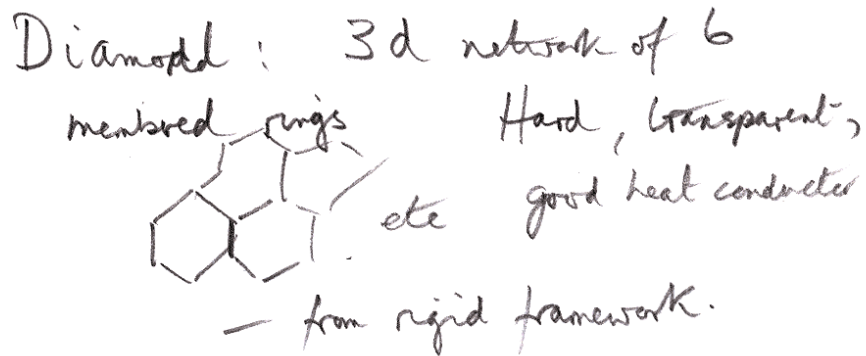 Diamond : 3d network of 6
membred rings Hard, transparent,
etc good heat conductor
— from rigid framework.